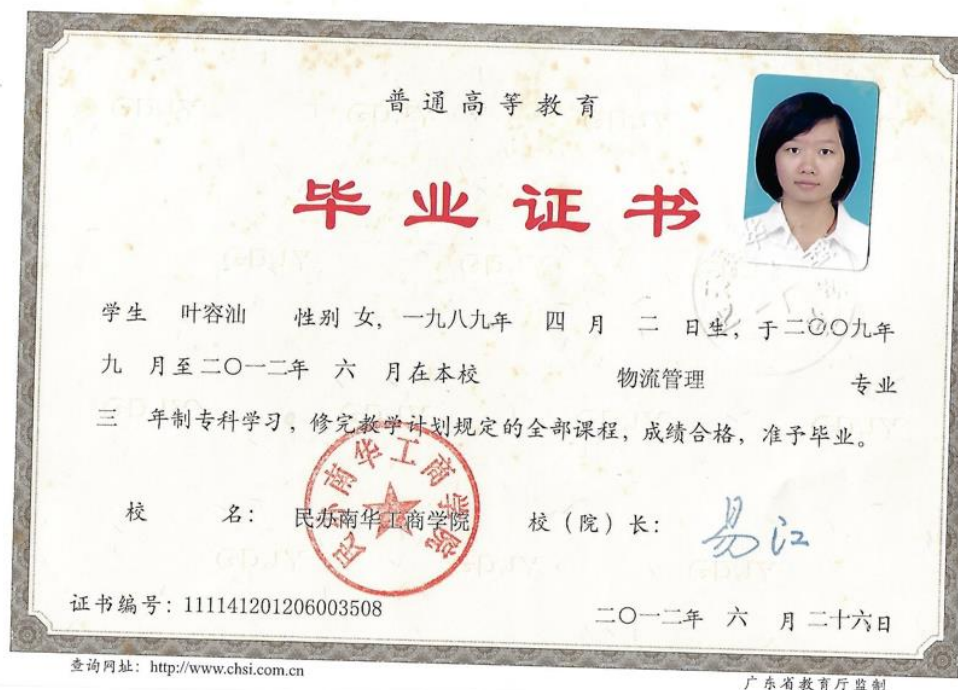 普通高等教育
毕业证书
学生 叶容汕 性别 女，一九八九年 四 月 二 日生，于二〇〇九年
九 月至二〇一二年 六 月在本校 物流管理 专业
三 年制专科学习，修完教学计划规定的全部课程，成绩合格，准予毕业。
民办南华工商学院
校 名： 民办南华工商学院 校（院）长： 易江
证书编号：111141201206003508 二〇一二年 六 月 二十六日
查询网址：http://www.chsi.com.cn 广东省教育厅监制